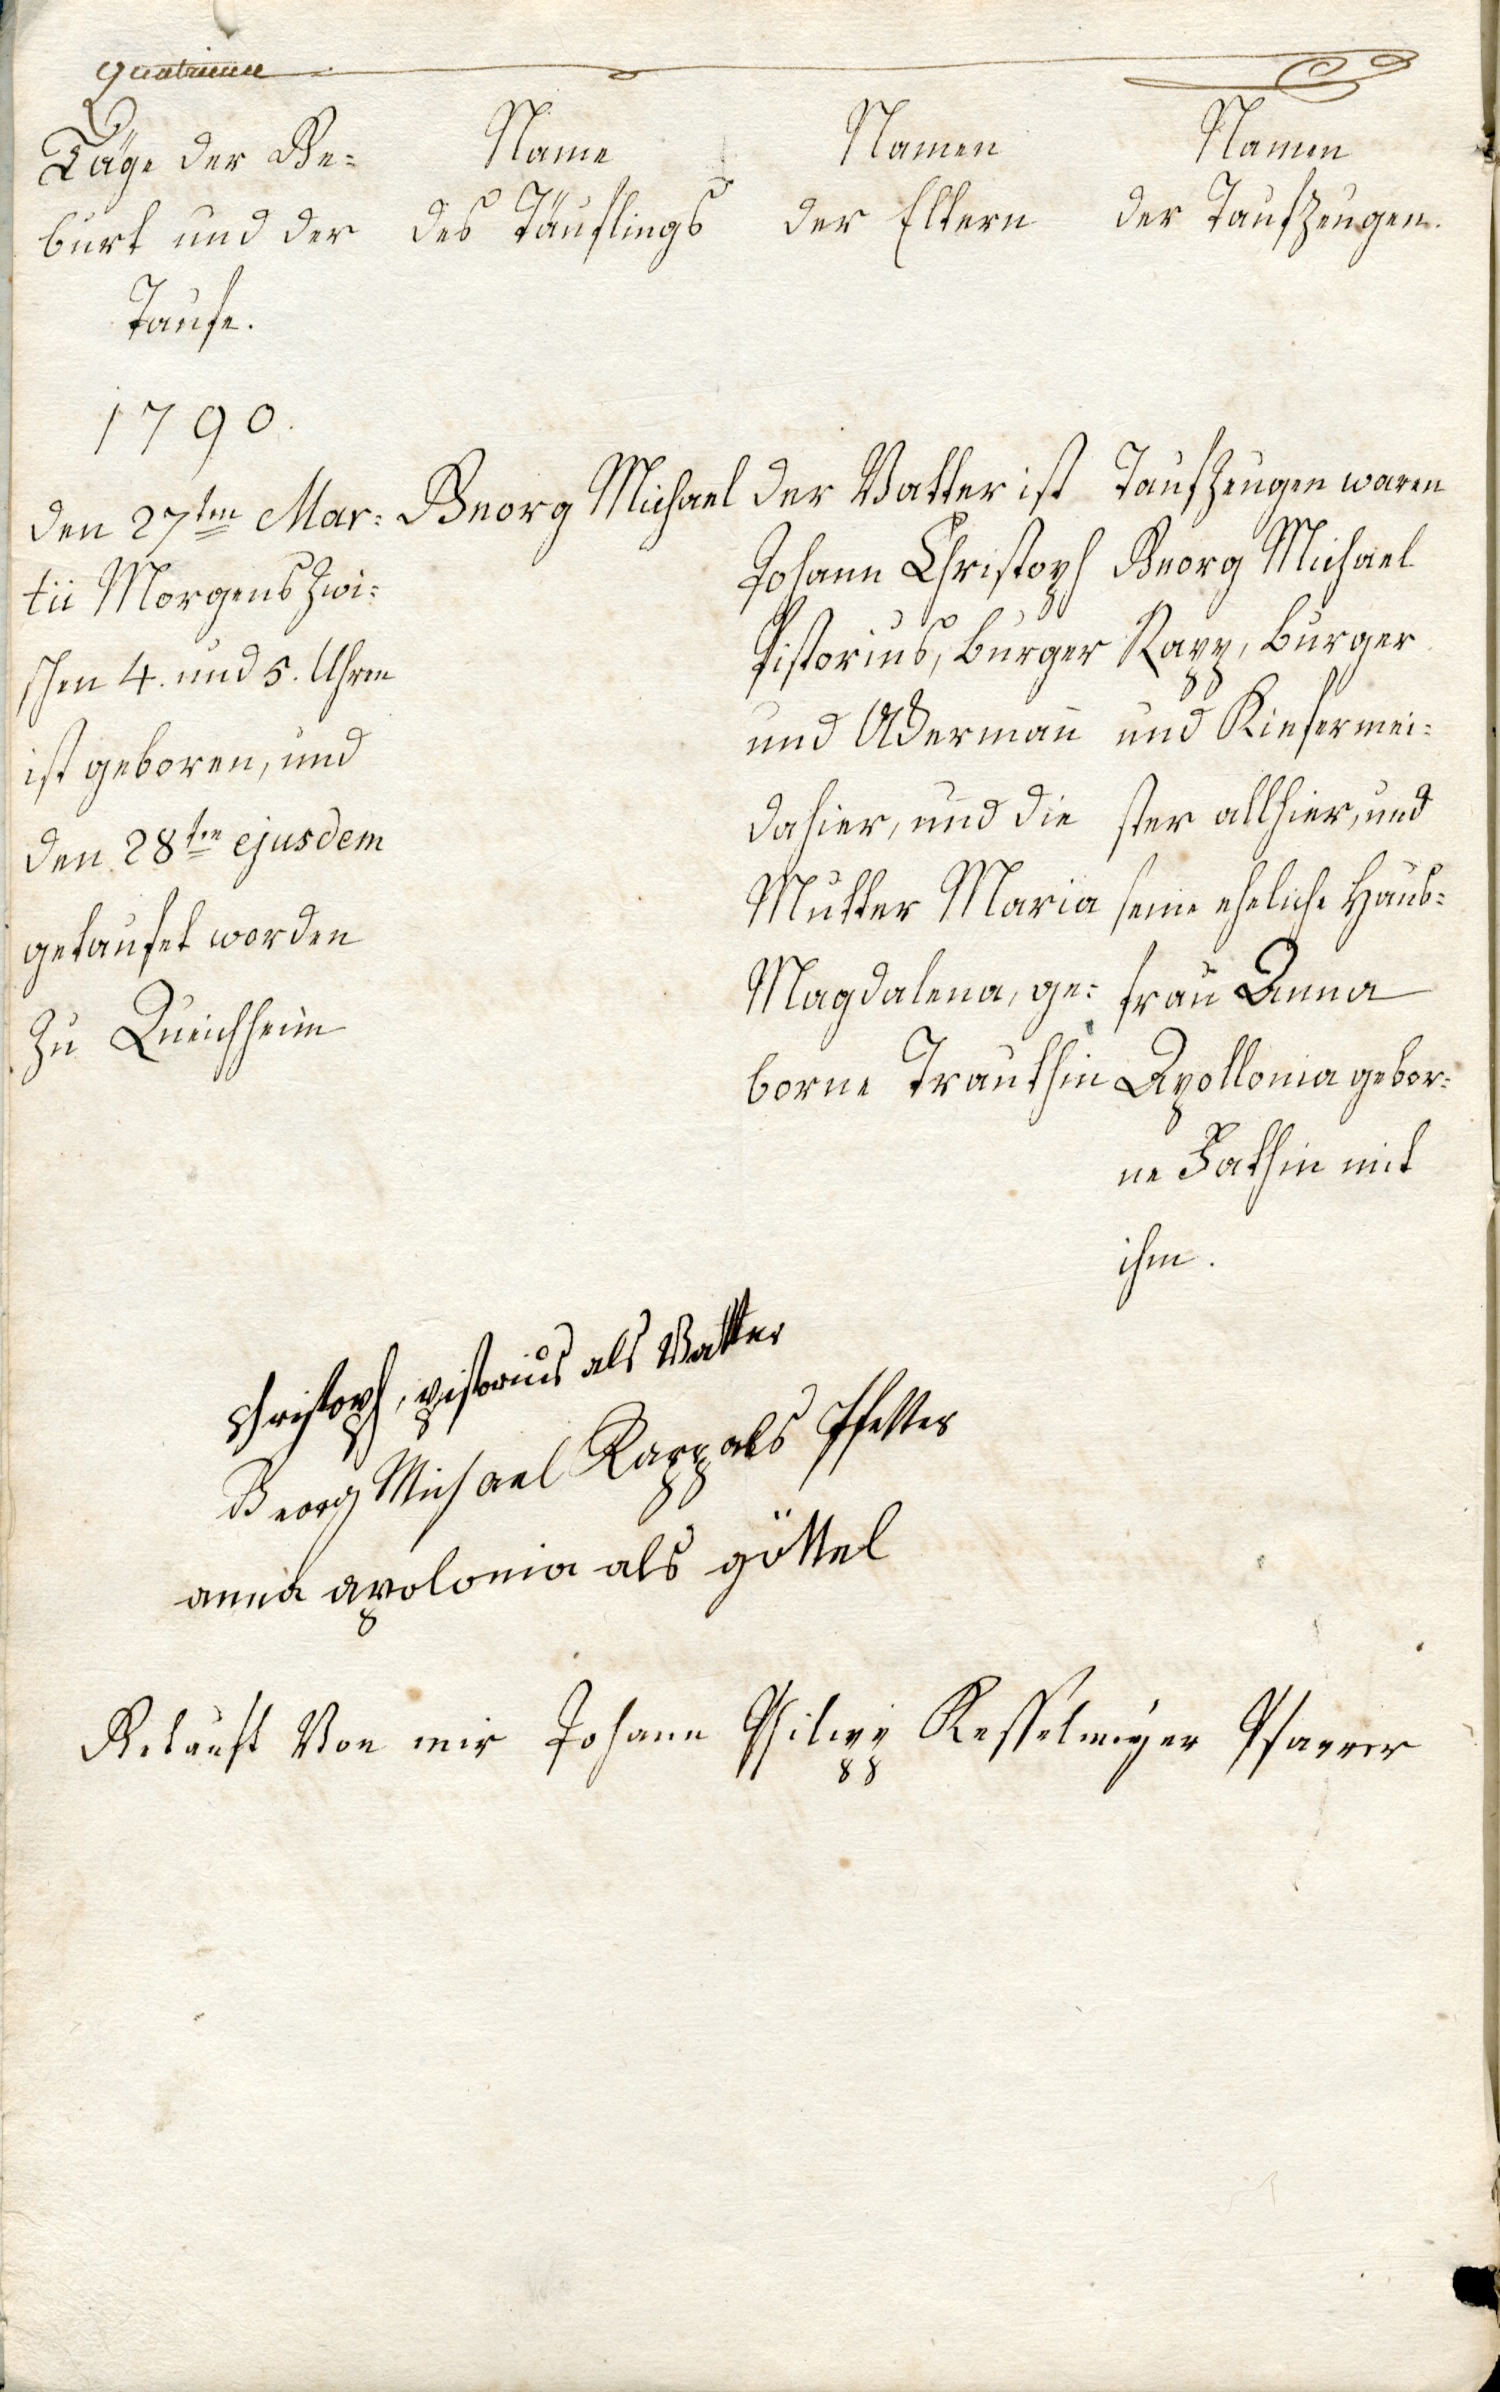 quatrieme
Täge der Ge=
burt und der
Taufe.
Name
des Täuflings
Namen
der Eltern
Namen
der Taufzeugen.
1790.
den 27ten Mar=
tii Morgens zwi=
schen 4. und 5. Uhren
ist geboren, und
den 28ten ejusdem
getaufet worden
zu Queichheim
Georg Michael
der Vatter ist
Johann Christoph
Pistorius, burger
und Ackermañ
dahier, und die
Mutter Maria
Magdalena, ge=
borne Trauthin
Taufzeugen waren
Georg Michael
Rapp, burger
und Kiefermei=
ster allhier, und
seine eheliche Haus=
frau Anna
Apollonia gebor=
ne Fathin mit
ihm.
christoph, pistorius als Vatter
Georg Michael Rapp als Pfetter
anna apolonia als göttel
Getauft Von mir Johann Philipp Kesselmeyer Pfarrer